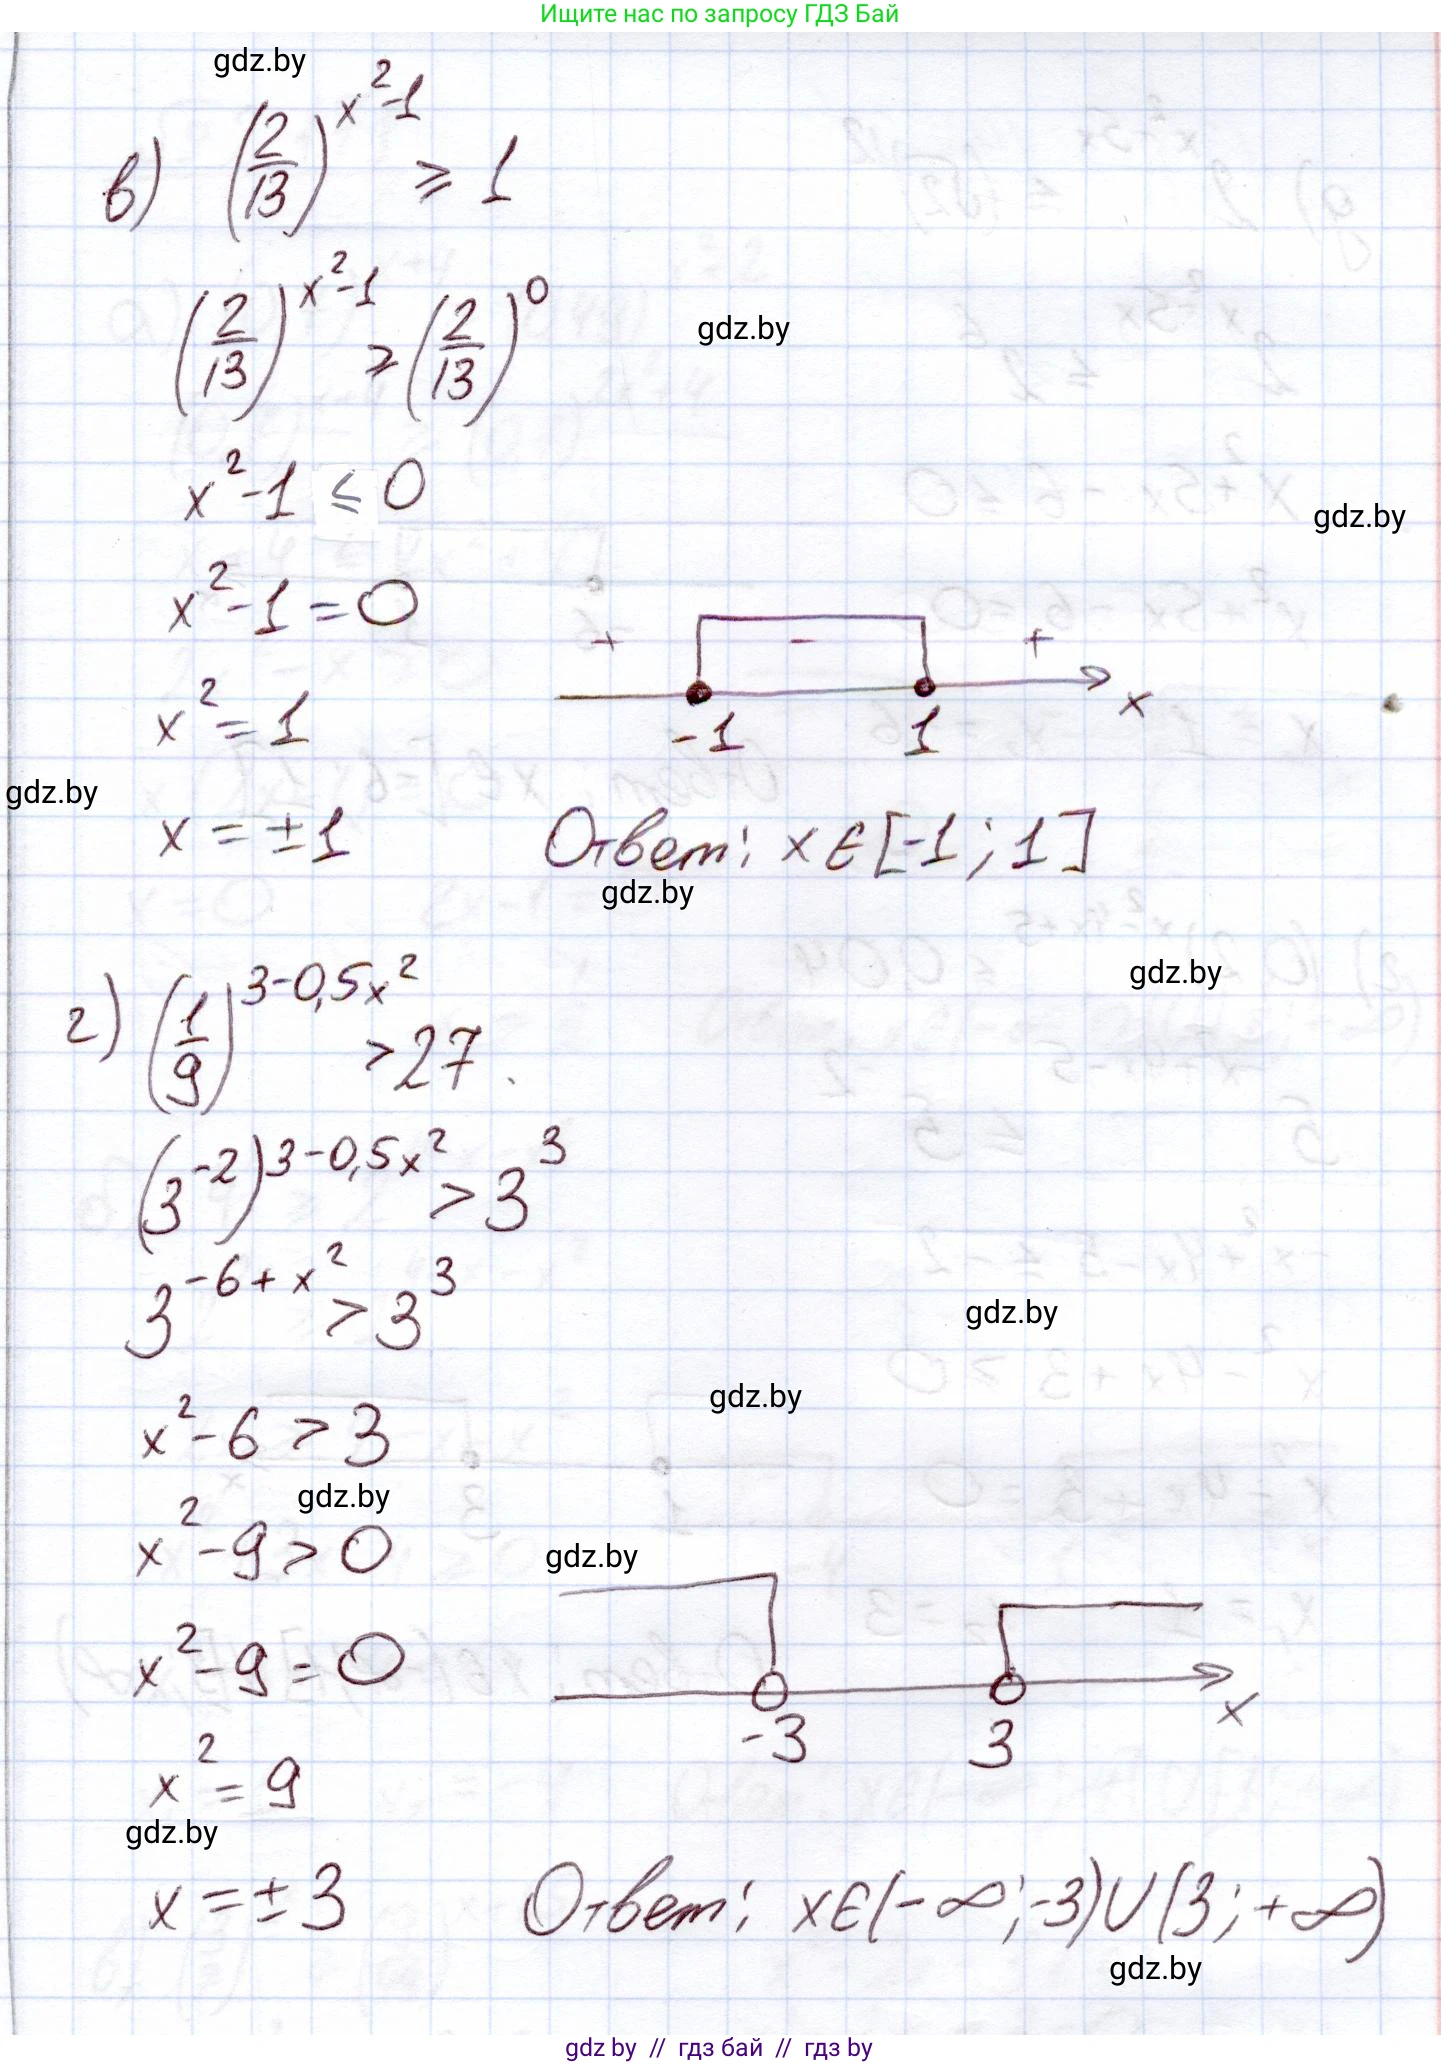 Ищите нас по запросу ГДЗ Бай
gdz.by
в) (2/13)^(x²-1) ≥ 1
(2/13)^(x²-1) ≥ (2/13)^0
gdz.by
x²-1 ≤ 0
gdz.by
x²-1 = 0
+ - +
x² = 1
-1 1 x
gdz.by
x = ±1
Ответ: x∈[-1; 1]
gdz.by
gdz.by
г) (1/9)^(3-0,5x²) > 27.
(3^-2)^(3-0,5x²) > 3^3
3^(-6+x²) > 3^3
gdz.by
gdz.by
x²-6 > 3
gdz.by
x²-9 > 0
gdz.by
x²-9 = 0
-3 3 x
x² = 9
gdz.by
x = ±3
Ответ: x∈(-∞;-3)∪(3;+∞)
gdz.by
gdz.by // гдз бай // гдз by